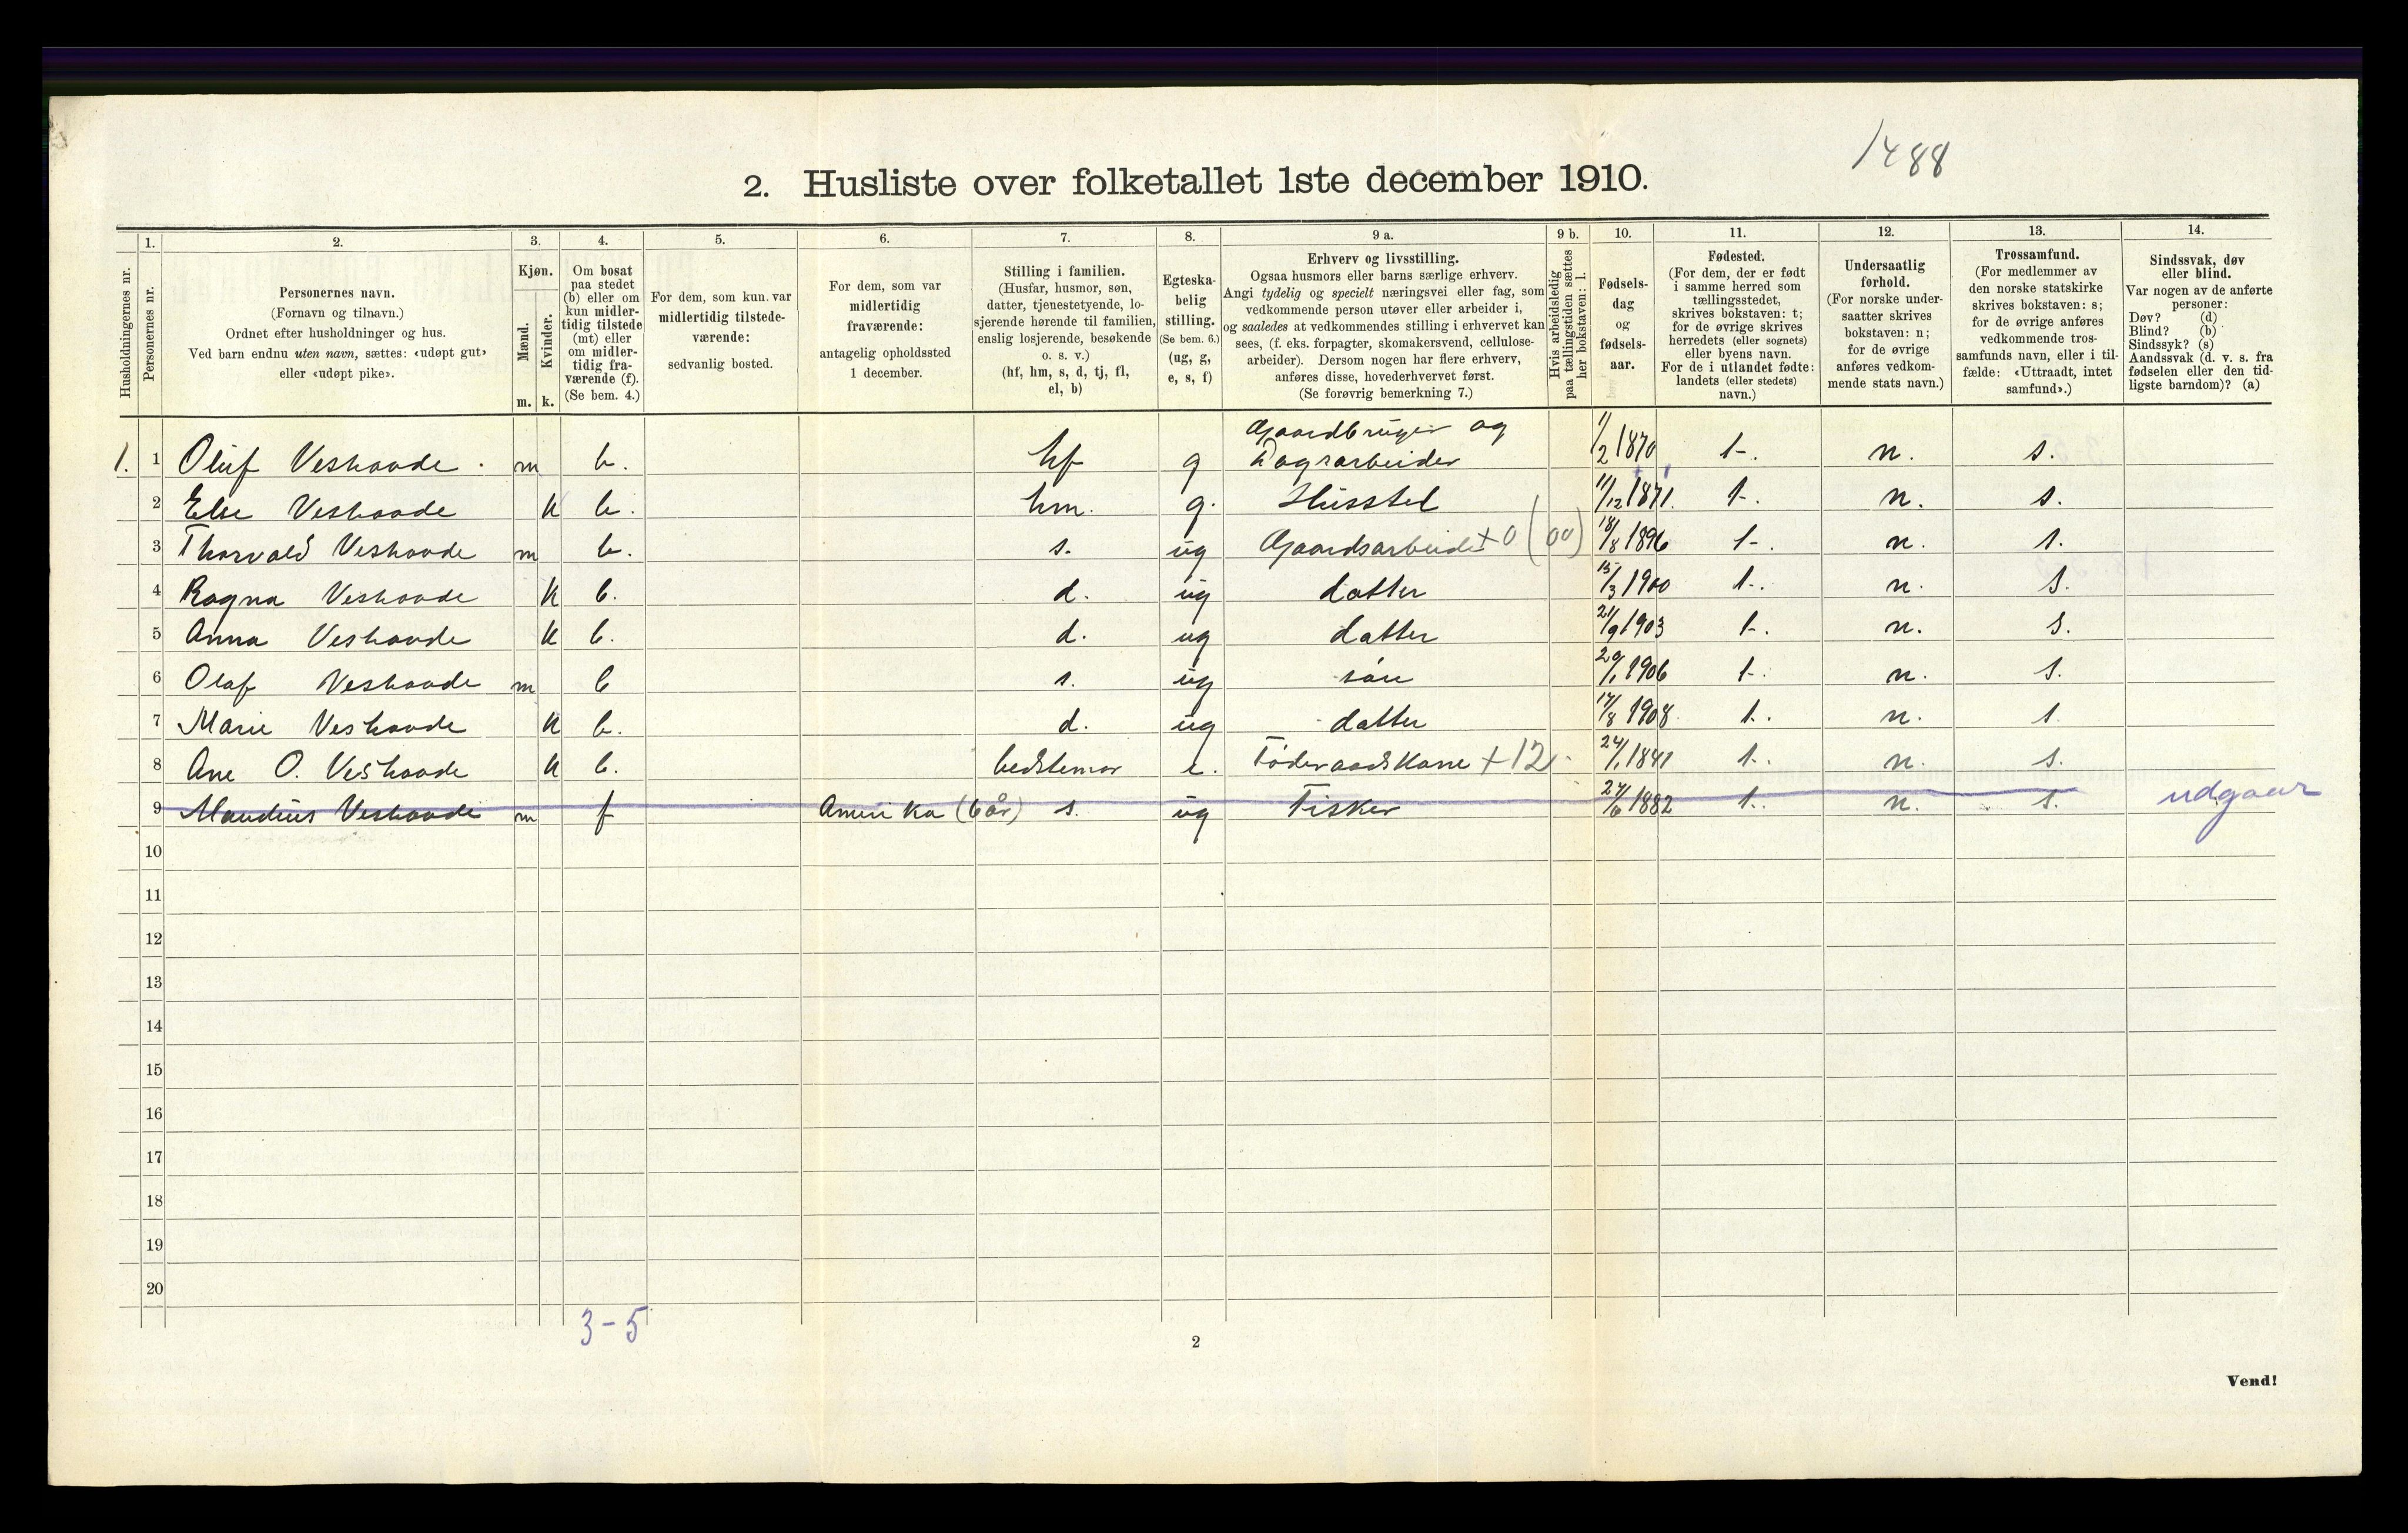 1488
2. Husliste over folketallet 1ste december 1910.
1. 2. 3. 4. 5. 6. 7. 8. 9 a. 9 b. 10. 11. 12. 13. 14.
Husholdningernes nr.
Personernes nr.
Personernes navn.
(Fornavn og tilnavn.)
Ordnet efter husholdninger og hus.
Ved barn endnu uten navn, sættes: «udøpt gut»
eller «udøpt pike».
Kjøn.
Mænd.
Kvinder.
m. k.
Om bosat
paa stedet
(b) eller om
kun midler-
tidig tilstede
(mt) eller
om midler-
tidig fra-
værende (f).
(Se bem. 4.)
For dem, som kun var
midlertidig tilstede-
værende:
sedvanlig bosted.
For dem, som var
midlertidig
fraværende:
antagelig opholdssted
1 december.
Stilling i familien.
(Husfar, husmor, søn,
datter, tjenestetyende, lo-
sjerende hørende til familien,
enslig losjerende, besøkende
o. s. v.)
(hf, hm, s, d, tj, fl,
el, b)
Egteska-
belig
stilling.
(Se bem. 6.)
(ug, g,
e, s, f)
Erhverv og livsstilling.
Ogsaa husmors eller barns særlige erhverv.
Angi tydelig og specielt næringsvei eller fag, som
vedkommende person utøver eller arbeider i,
og saaledes at vedkommendes stilling i erhvervet kan
sees, (f. eks. forpagter, skomakersvend, cellulose-
arbeider). Dersom nogen har flere erhverv,
anføres disse, hovederhvervet først.
(Se forøvrig bemerkning 7.)
Hvis arbeidsledig
paa tællingstiden sættes
her bokstaven: l.
Fødsels-
dag
og
fødsels-
aar.
Fødested.
(For dem, der er født
i samme herred som
tællingsstedet,
skrives bokstaven: t;
for de øvrige skrives
herredets (eller sognets)
eller byens navn.
For de i utlandet fødte:
landets (eller stedets)
navn.)
Undersaatlig
forhold.
(For norske under-
saatter skrives
bokstaven: n;
for de øvrige
anføres vedkom-
mende stats navn.)
Trossamfund.
(For medlemmer av
den norske statskirke
skrives bokstaven: s;
for de øvrige anføres
vedkommende tros-
samfunds navn, eller i til-
fælde: «Uttraadt, intet
samfund».)
Sindssvak, døv
eller blind.
Var nogen av de anførte
personer:
Døv? (d)
Blind? (b)
Sindssyk? (s)
Aandssvak (d. v. s. fra
fødselen eller den tid-
ligste barndom)? (a)
Gaardbruger og
1. 1 Oluf Veshovde. m b. hf g Dagsarbeider 1/2 1870 t. n. s.
2 Else Veshovde k b. hm. g. Husstel 11/12 1871. t. n. s.
3 Thorvald Veshovde m b. s. ug Gaardsarbeider +0 (00) 18/8 1896 t. n. s.
4 Ragna Veshovde k b. d. ug datter 15/3 1900 t. n. s.
5 Anna Veshovde k b. d. ug datter 21/9 1903 t. n. s.
6 Olaf Veshovde m b s. ug søn 29/1 1906 t. n. s.
7 Marie Veshovde k b. d. ug datter 17/8 1908 t. n. s.
8 Ane O. Veshovde k b. bedstemor e. Föderaadskone +12 24/1 1841 t. n. s.
9 Veshovde m f Amerika (6 år) s. ug Fisker 27/6 1882 t. n. s. udgaar
10
11
12
13
14
15
16
17
18
19
20
3-5
2
Vend!